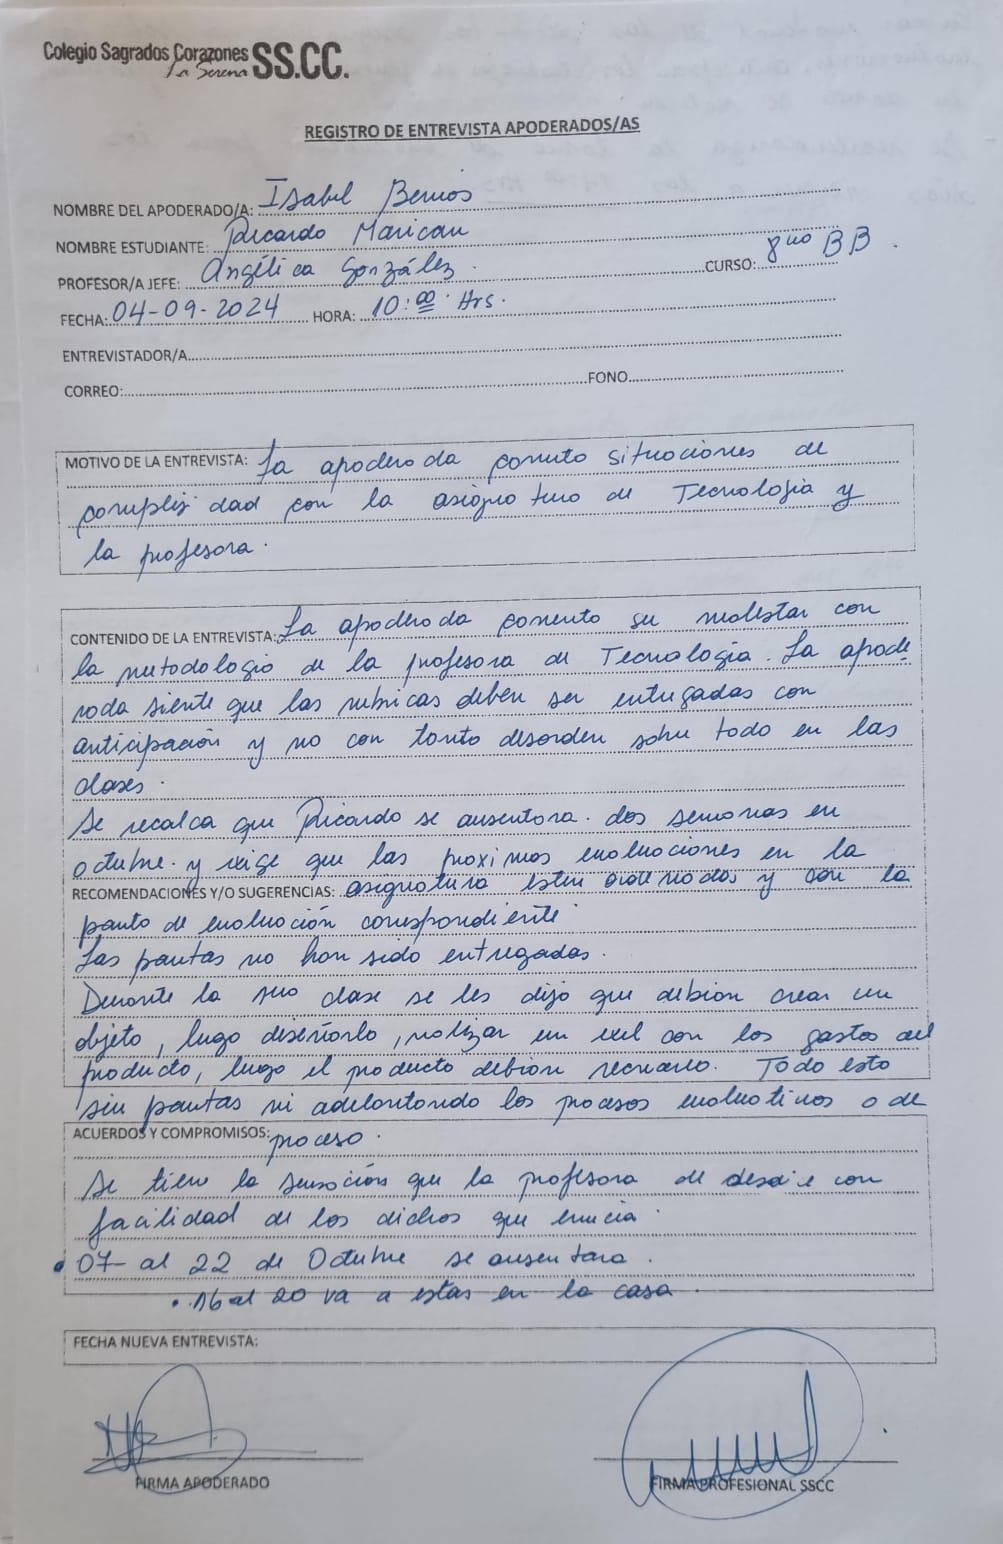 Colegio Sagrados Corazones
La Serena SS.CC.
REGISTRO DE ENTREVISTA APODERADOS/AS
NOMBRE DEL APODERADO/A: Isabel Berrios
NOMBRE ESTUDIANTE: Ricardo Marican
PROFESOR/A JEFE: Angélica González. CURSO: 8vo BB.
FECHA: 04-09-2024 HORA: 10:00 Hrs.
ENTREVISTADOR/A
CORREO: FONO
MOTIVO DE LA ENTREVISTA: La apoderada comento situaciones de
complejidad con la asignatura de Tecnologia y
la profesora.
CONTENIDO DE LA ENTREVISTA: La apoderada comento su malestar con
la metodologia de la profesora de Tecnología. La apode
rada siente que las rubricas deben ser entregadas con
anticipación y no con tanto desorden sobre todo en las
clases.
Se recalca que Ricardo se ausentara. dos semanas en
octubre. y exige que las proximas evaluaciones en la
RECOMENDACIONES Y/O SUGERENCIAS: asignatura esten ordenadas y con la
pauta de evaluación correspondiente.
Las pautas no han sido entregadas.
Durante la clase se les dijo que debian crear un
objeto, luego diseñarlo, realizar un exel con los gastos del
producto, luego el producto debian recrearlo. Todo esto
sin pautas ni adelantando los procesos evaluativos o de
ACUERDOS Y COMPROMISOS: proceso.
Se tiene la sensación que la profesora de desdice con
facilidad de los dichos que enuncia.
• 07- al 22 de Octubre se ausentara.
• 16 al 20 va a estas en la casa.
FECHA NUEVA ENTREVISTA:
FIRMA APODERADO FIRMA PROFESIONAL SSCC